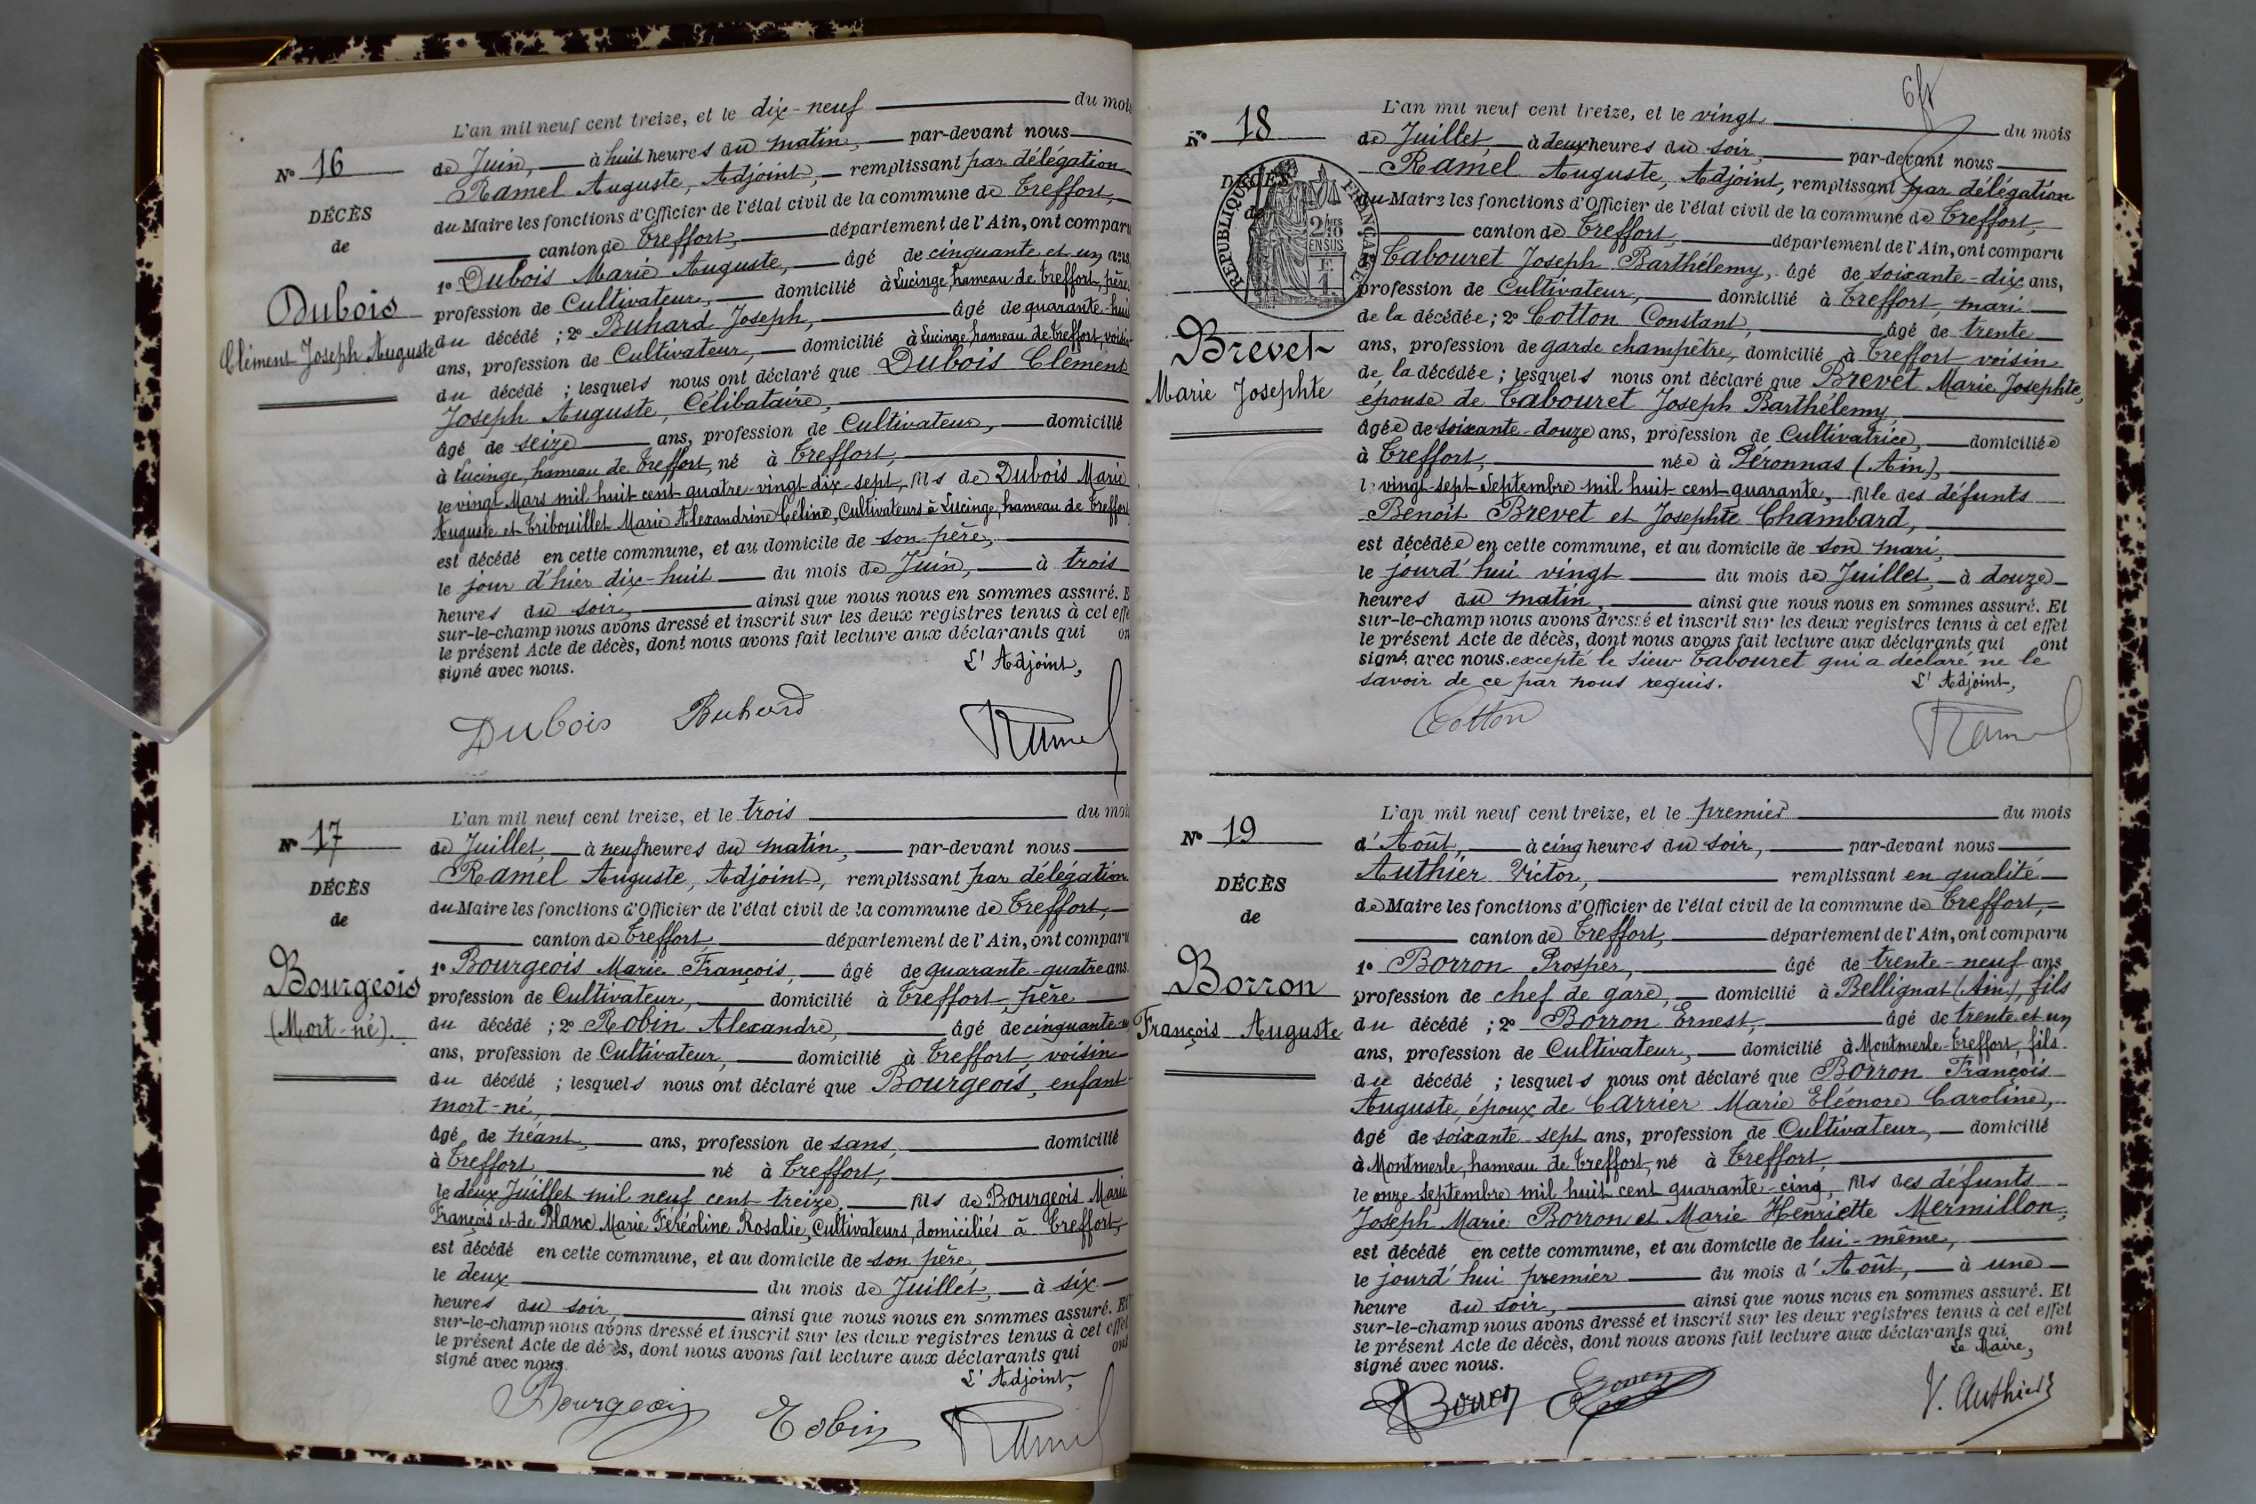 N° 16
DÉCÈS
de
Dubois
Clément Joseph Auguste
L'an mil neuf cent treize, et le dix-neuf du mois
de Juin, à huit heures du matin, par-devant nous
Ramel Auguste, Adjoint, remplissant par délégation
du Maire les fonctions d'Officier de l'état civil de la commune de Treffort,
canton de Treffort, département de l'Ain, ont comparu
1° Dubois Marie Auguste, âgé de cinquante et un ans,
profession de Cultivateur, domicilié à Lucinge, hameau de Treffort, père
du décédé ; 2° Buhard Joseph, âgé de quarante-huit
ans, profession de Cultivateur, domicilié à Lucinge hameau de Treffort, voisin
du décédé ; lesquels nous ont déclaré que Dubois Clément
Joseph Auguste, Célibataire,
âgé de seize ans, profession de Cultivateur, domicilié
à Lucinge, hameau de Treffort, né à Treffort,
le vingt Mars mil huit cent quatre-vingt-dix-sept, fils de Dubois Marie
Auguste et Tribouillet Marie Alexandrine Céline, Cultivateurs à Lucinge, hameau de Treffort
est décédé en cette commune, et au domicile de son père,
le jour d'hier dix-huit du mois de Juin, à trois
heures du soir, ainsi que nous nous en sommes assuré. E
sur-le-champ nous avons dressé et inscrit sur les deux registres tenus à cet effe
le présent Acte de décès, dont nous avons fait lecture aux déclarants qui on
signé avec nous.
L'Adjoint,
Dubois Buhard Ramel
N° 17
DÉCÈS
de
Bourgeois
(Mort-né).
L'an mil neuf cent treize, et le trois du mois
de Juillet, à neuf heures du matin, par-devant nous
Ramel Auguste, Adjoint, remplissant par délégation
du Maire les fonctions d'Officier de l'état civil de la commune de Treffort,
canton de Treffort, département de l'Ain, ont comparu
1° Bourgeois Marie François, âgé de quarante-quatre ans,
profession de Cultivateur, domicilié à Treffort, père
du décédé ; 2° Robin Alexandre, âgé de cinquante-
ans, profession de Cultivateur, domicilié à Treffort, voisin
du décédé ; lesquels nous ont déclaré que Bourgeois, enfant
mort-né,
âgé de néant, ans, profession de sans, domicilié
à Treffort né à Treffort,
le deux Juillet mil neuf cent treize, fils de Bourgeois Marie
François et de Blanc Marie Féréoline Rosalie, Cultivateurs, domiciliés à Treffort,
est décédé en cette commune, et au domicile de son père,
le deux du mois de Juillet, à six
heures du soir, ainsi que nous nous en sommes assuré. Et
sur-le-champ nous avons dressé et inscrit sur les deux registres tenus à cet effet
le présent Acte de décès, dont nous avons fait lecture aux déclarants qui ont
signé avec nous.
L'Adjoint,
Bourgeois Robin Ramel
N° 18
DÉCÈS
de
RÉPUBLIQUE FRANÇAISE
2/10 EN SUS
Brevet
Marie Josephte
L'an mil neuf cent treize, et le vingt du mois
de Juillet, à deux heures du soir, par-devant nous
Ramel Auguste, Adjoint, remplissant par délégation
du Maire les fonctions d'Officier de l'état civil de la commune de Treffort,
canton de Treffort, département de l'Ain, ont comparu
1° Tabouret Joseph Barthélemy, âgé de soixante-dix ans,
profession de Cultivateur, domicilié à Treffort, mari
de la décédée ; 2° Cotton Constant, âgé de trente
ans, profession de garde champêtre, domicilié à Treffort voisin
de la décédée ; lesquels nous ont déclaré que Brevet Marie Josephte,
épouse de Tabouret Joseph Barthélemy,
âgée de soixante-douze ans, profession de Cultivatrice, domiciliée
à Treffort, née à Péronnas (Ain),
le vingt-sept Septembre mil huit cent quarante, fille des défunts
Benoit Brevet et Josephte Chambard,
est décédée en cette commune, et au domicile de son mari,
le jourd'hui vingt du mois de Juillet, à douze
heures du matin, ainsi que nous nous en sommes assuré. Et
sur-le-champ nous avons dressé et inscrit sur les deux registres tenus à cet effet
le présent Acte de décès, dont nous avons fait lecture aux déclarants qui ont
signé avec nous. excepté le sieur Tabouret qui a déclaré ne le
savoir de ce par nous requis.
L'Adjoint,
Cotton Ramel
N° 19
DÉCÈS
de
Borron
François Auguste
L'an mil neuf cent treize, et le premier du mois
d'Août, à cinq heures du soir, par-devant nous
Authier Victor, remplissant en qualité
de Maire les fonctions d'Officier de l'état civil de la commune de Treffort,
canton de Treffort, département de l'Ain, ont comparu
1° Borron Prosper, âgé de trente-neuf ans
profession de chef de gare, domicilié à Bellignat (Ain), fils
du décédé ; 2° Borron Ernest, âgé de trente et un
ans, profession de Cultivateur, domicilié à Montmerle-Treffort, fils
du décédé ; lesquels nous ont déclaré que Borron François
Auguste, époux de Carrier Marie Eléonore Caroline,
âgé de soixante sept ans, profession de Cultivateur, domicilié
à Montmerle, hameau de Treffort, né à Treffort,
le onze Septembre mil huit cent quarante-cinq, fils des défunts
Joseph Marie Borron et Marie Henriette Mermillon,
est décédé en cette commune, et au domicile de lui-même,
le jourd'hui premier du mois d'Août, à une
heure du soir, ainsi que nous nous en sommes assuré. Et
sur-le-champ nous avons dressé et inscrit sur les deux registres tenus à cet effet
le présent Acte de décès, dont nous avons fait lecture aux déclarants qui ont
signé avec nous.
Le Maire,
Borron Borron V. Authier